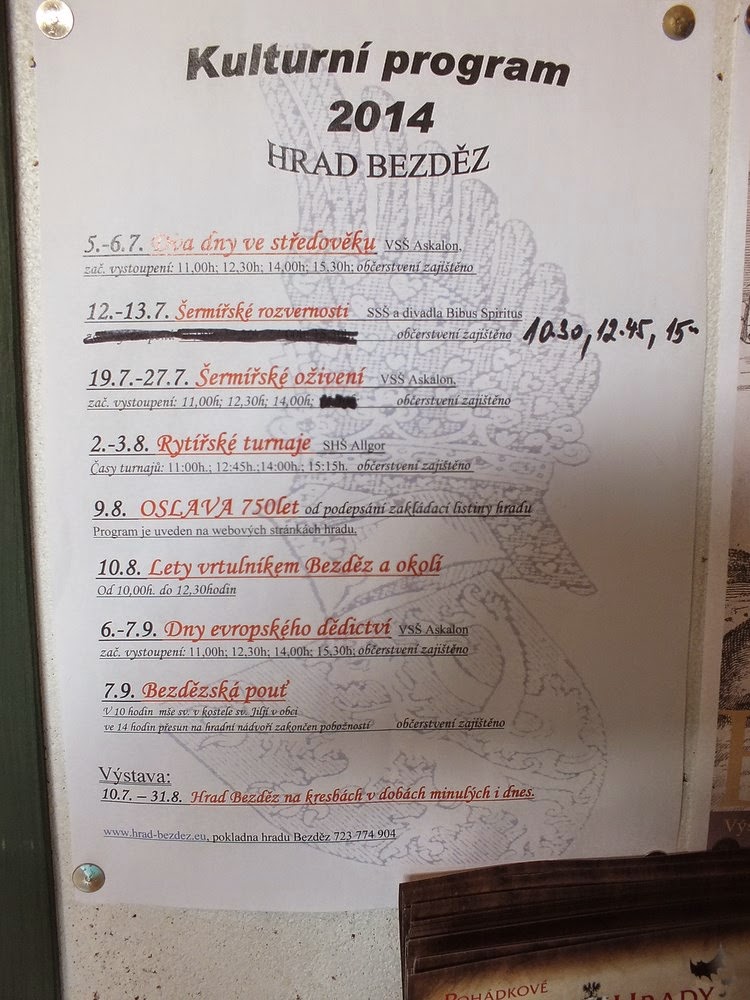 Kulturní program
2014
HRAD BEZDĚZ
5.-6.7. Dva dny ve středověku VSŠ Askalon,
zač. vystoupení: 11,00h; 12,30h; 14,00h; 15,30h; občerstvení zajištěno
12.-13.7. Šermířské rozvernosti SŠŠ a divadla Bibus Spiritus
občerstvení zajištěno 10.30, 12.45, 15-
19.7.-27.7. Šermířské oživení VSŠ Askalon,
zač. vystoupení: 11,00h; 12,30h; 14,00h; občerstvení zajištěno
2.-3.8. Rytířské turnaje SHŠ Allgor
Časy turnajů: 11:00h.; 12:45h.;14:00h.; 15:15h. občerstvení zajištěno
9.8. OSLAVA 750let od podepsání zakládací listiny hradu
Program je uveden na webových stránkách hradu.
10.8. Lety vrtulníkem Bezděz a okolí
Od 10,00h. do 12,30hodin
6.-7.9. Dny evropského dědictví VSŠ Askalon
zač. vystoupení: 11,00h; 12,30h; 14,00h; 15,30h; občerstvení zajištěno
7.9. Bezdězská pouť
V 10 hodin mše sv. v kostele sv. Jiljí v obci
ve 14 hodin přesun na hradní nádvoří zakončen pobožností občerstvení zajištěno
Výstava:
10.7. – 31.8. Hrad Bezděz na kresbách v dobách minulých i dnes.
www.hrad-bezdez.eu, pokladna hradu Bezděz 723 774 904
POHÁDKOVÉ
HRADY